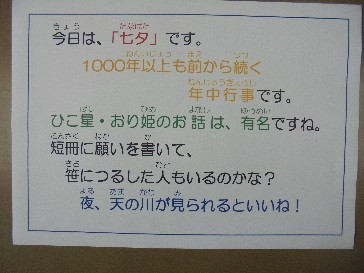 今日は、「七夕」です。
1000年以上も前から続く
年中行事です。
ひこ星・おり姫のお話は、有名ですね。
短冊に願いを書いて、
笹につるした人もいるのかな？
夜、天の川が見られるといいね！